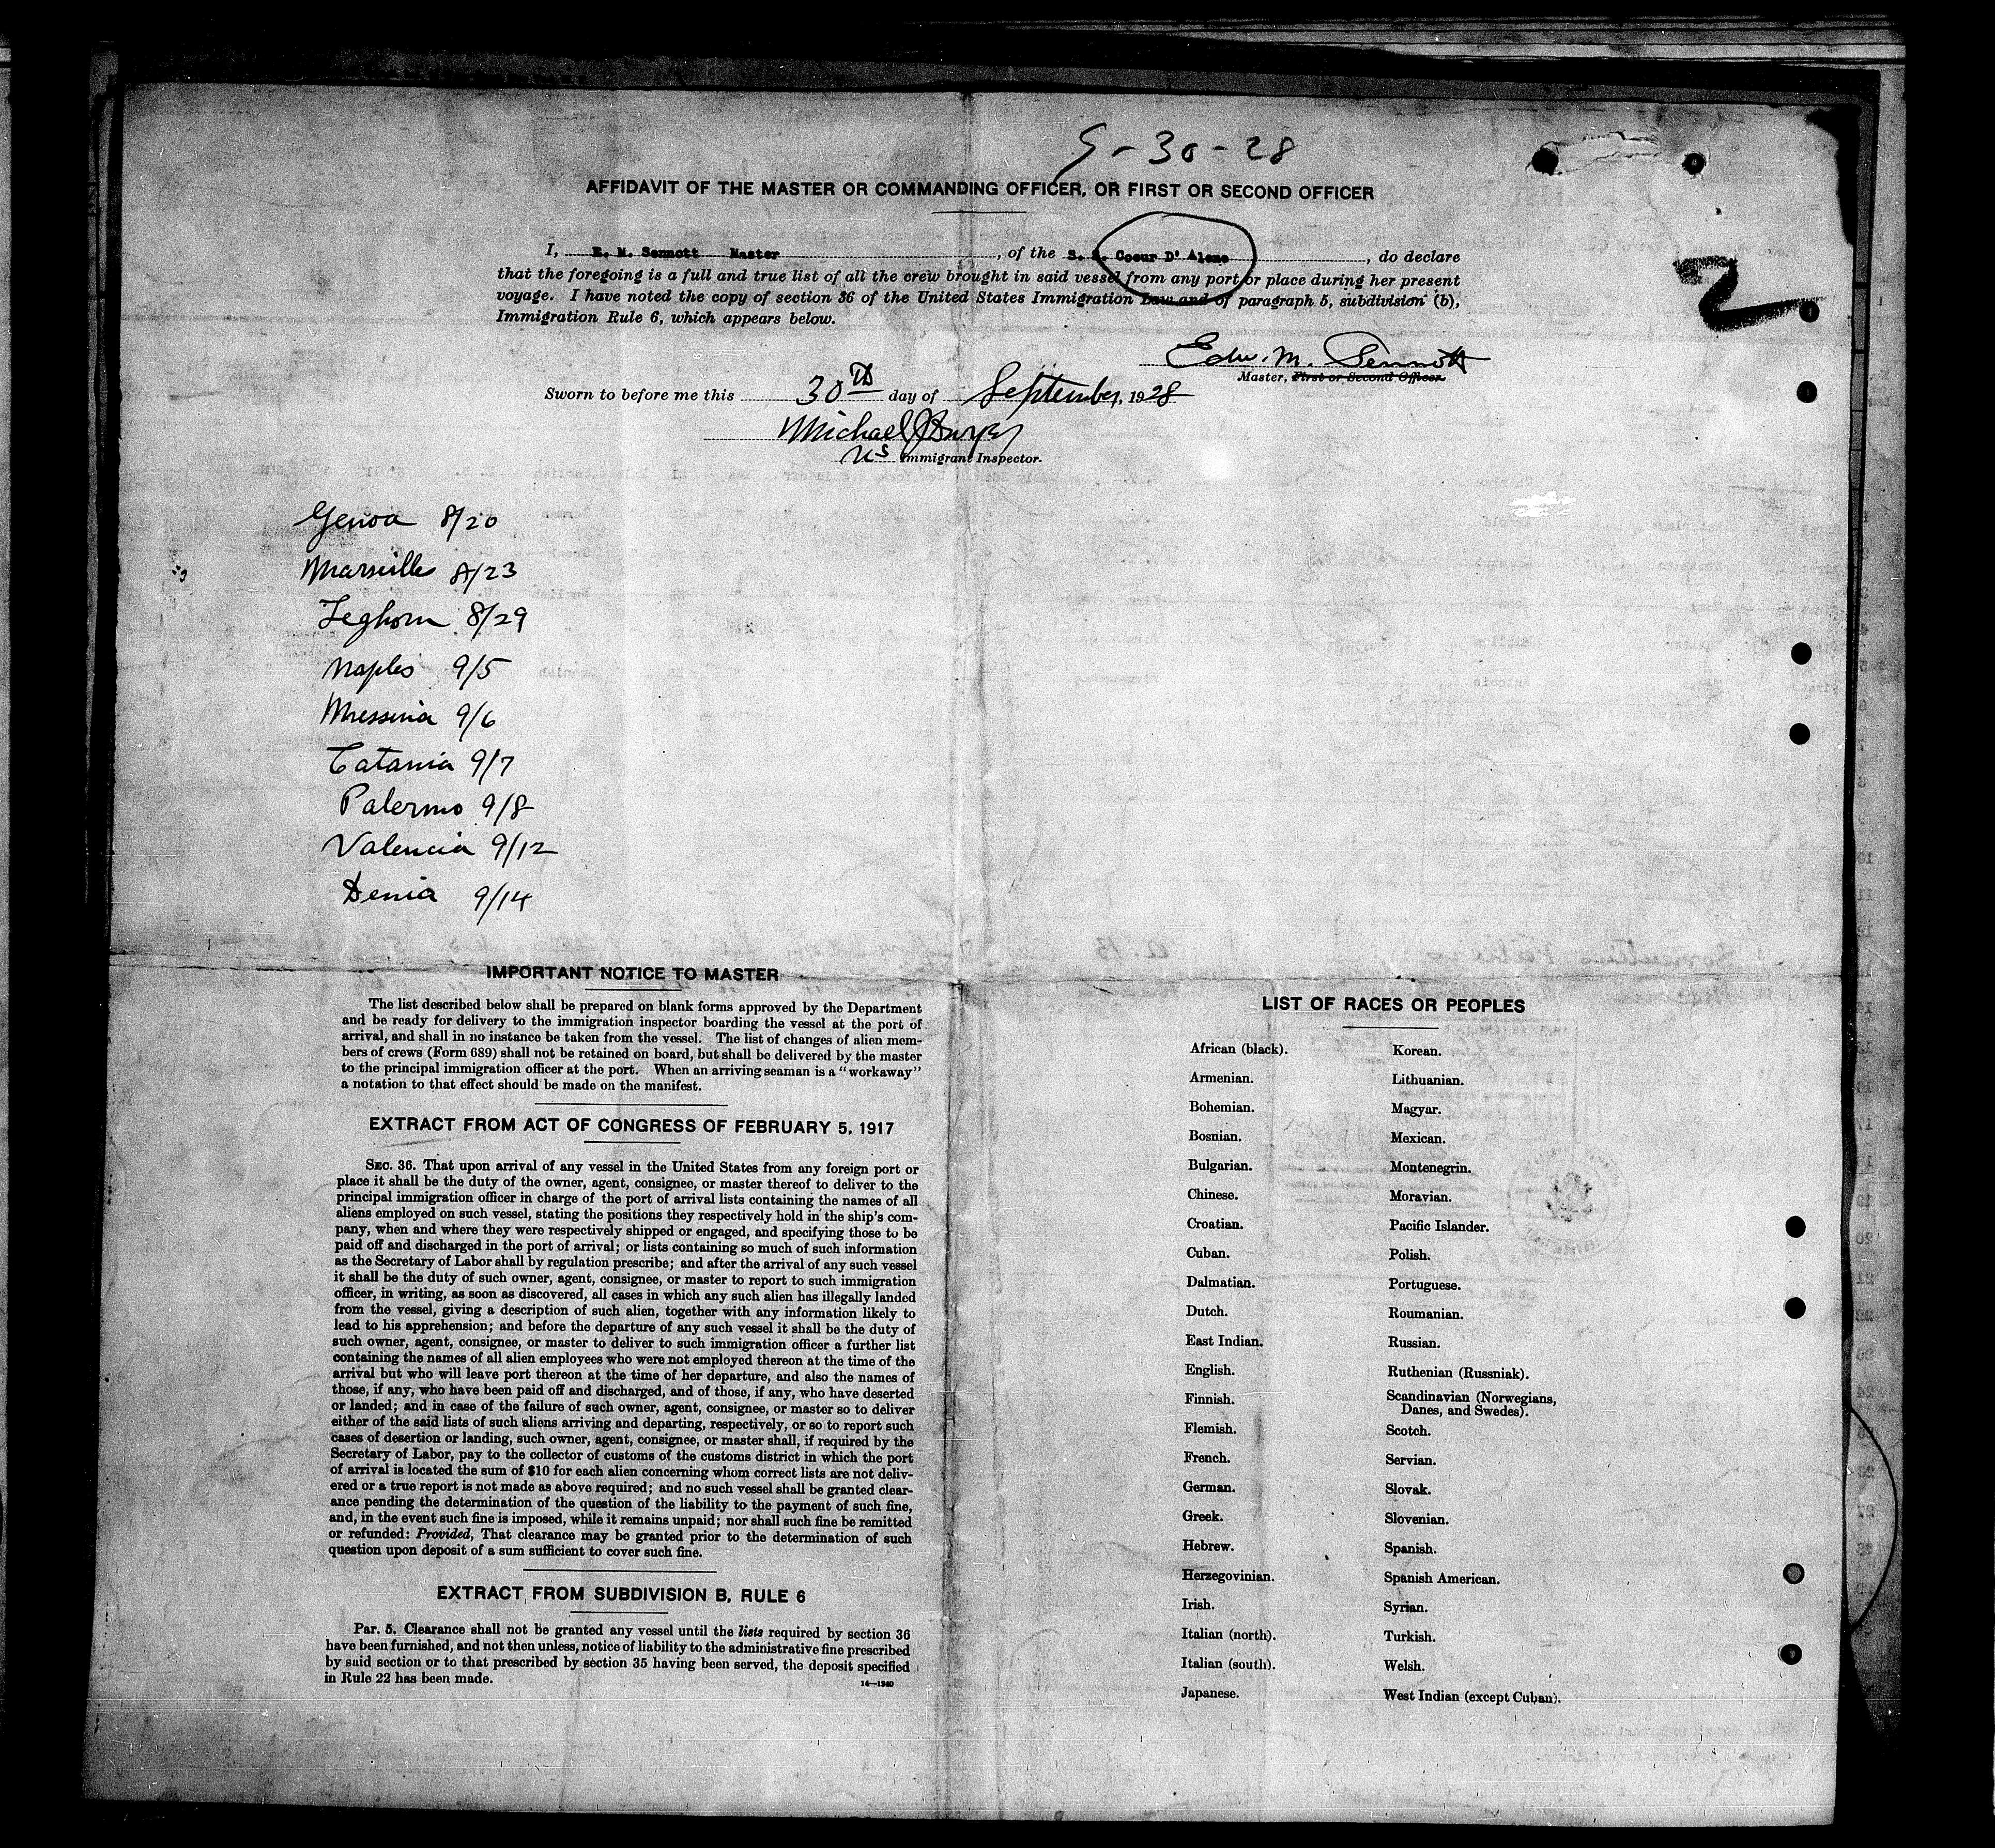 9-30-28
AFFIDAVIT OF THE MASTER OR COMMANDING OFFICER, OR FIRST OR SECOND OFFICER
I, E. M. Sennott Master, of the S. S. Coeur D' Alene, do declare
that the foregoing is a full and true list of all the crew brought in said vessel from any port or place during her present
voyage. I have noted the copy of section 36 of the United States Immigration Law and of paragraph 5, subdivision (b),
Immigration Rule 6, which appears below.
2
Edw. M. Sennott
Master, First or Second Officer.
Sworn to before me this 30th day of September, 1928
Michael
US Immigrant Inspector.
Genoa 8/20
Marseille 8/23
Leghorn 8/29
Naples 9/5
Messina 9/6
Catania 9/7
Palermo 9/8
Valencia 9/12
Denia 9/14
IMPORTANT NOTICE TO MASTER
The list described below shall be prepared on blank forms approved by the Department
and be ready for delivery to the immigration inspector boarding the vessel at the port of
arrival, and shall in no instance be taken from the vessel. The list of changes of alien mem-
bers of crews (Form 689) shall not be retained on board, but shall be delivered by the master
to the principal immigration officer at the port. When an arriving seaman is a "workaway"
a notation to that effect should be made on the manifest.
EXTRACT FROM ACT OF CONGRESS OF FEBRUARY 5, 1917
SEC. 36. That upon arrival of any vessel in the United States from any foreign port or
place it shall be the duty of the owner, agent, consignee, or master thereof to deliver to the
principal immigration officer in charge of the port of arrival lists containing the names of all
aliens employed on such vessel, stating the positions they respectively hold in the ship's com-
pany, when and where they were respectively shipped or engaged, and specifying those to be
paid off and discharged in the port of arrival; or lists containing so much of such information
as the Secretary of Labor shall by regulation prescribe; and after the arrival of any such vessel
it shall be the duty of such owner, agent, consignee, or master to report to such immigration
officer, in writing, as soon as discovered, all cases in which any such alien has illegally landed
from the vessel, giving a description of such alien, together with any information likely to
lead to his apprehension; and before the departure of any such vessel it shall be the duty of
such owner, agent, consignee, or master to deliver to such immigration officer a further list
containing the names of all alien employees who were not employed thereon at the time of the
arrival but who will leave port thereon at the time of her departure, and also the names of
those, if any, who have been paid off and discharged, and of those, if any, who have deserted
or landed; and in case of the failure of such owner, agent, consignee, or master so to deliver
either of the said lists of such aliens arriving and departing, respectively, or so to report such
cases of desertion or landing, such owner, agent, consignee, or master shall, if required by the
Secretary of Labor, pay to the collector of customs of the customs district in which the port
of arrival is located the sum of $10 for each alien concerning whom correct lists are not deliv-
ered or a true report is not made as above required; and no such vessel shall be granted clear-
ance pending the determination of the question of the liability to the payment of such fine,
and, in the event such fine is imposed, while it remains unpaid; nor shall such fine be remitted
or refunded: Provided, That clearance may be granted prior to the determination of such
question upon deposit of a sum sufficient to cover such fine.
EXTRACT FROM SUBDIVISION B, RULE 6
Par. 5. Clearance shall not be granted any vessel until the lists required by section 36
have been furnished, and not then unless, notice of liability to the administrative fine prescribed
by said section or to that prescribed by section 35 having been served, the deposit specified
in Rule 22 has been made.
14—1240
LIST OF RACES OR PEOPLES
African (black).
Armenian.
Bohemian.
Bosnian.
Bulgarian.
Chinese.
Croatian.
Cuban.
Dalmatian.
Dutch.
East Indian.
English.
Finnish.
Flemish.
French.
German.
Greek.
Hebrew.
Herzegovinian.
Irish.
Italian (north).
Italian (south).
Japanese.
Korean.
Lithuanian.
Magyar.
Mexican.
Montenegrin.
Moravian.
Pacific Islander.
Polish.
Portuguese.
Roumanian.
Russian.
Ruthenian (Russniak).
Scandinavian (Norwegians,
Danes, and Swedes).
Scotch.
Servian.
Slovak.
Slovenian.
Spanish.
Spanish American.
Syrian.
Turkish.
Welsh.
West Indian (except Cuban).